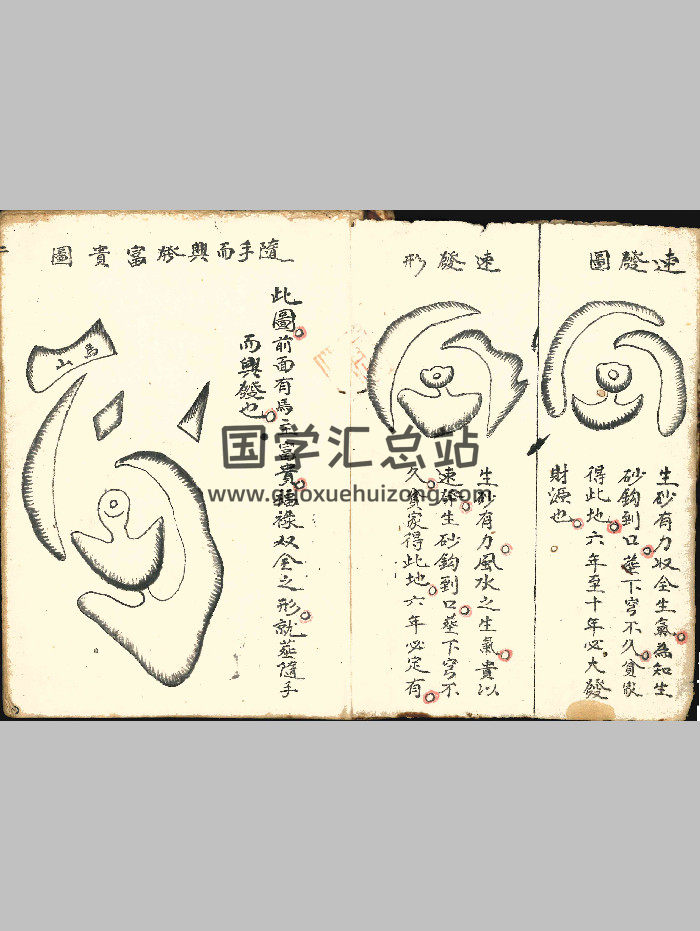 速發圖
生砂有力収全生氣為知生
砂鈎到口塟下穹不久貧家
得此地六年至十年必大發
財源也
速發形
生砂有力風水之生氣貴以
速 生砂鈎到口塟下穹不
久貧家得此地六年必定有
隨手而興發富貴圖
此圖前面有馬 富貴 祿双全之形就塟隨手
而興發也
馬山
国学汇总站
www.guoxuehuizong.com